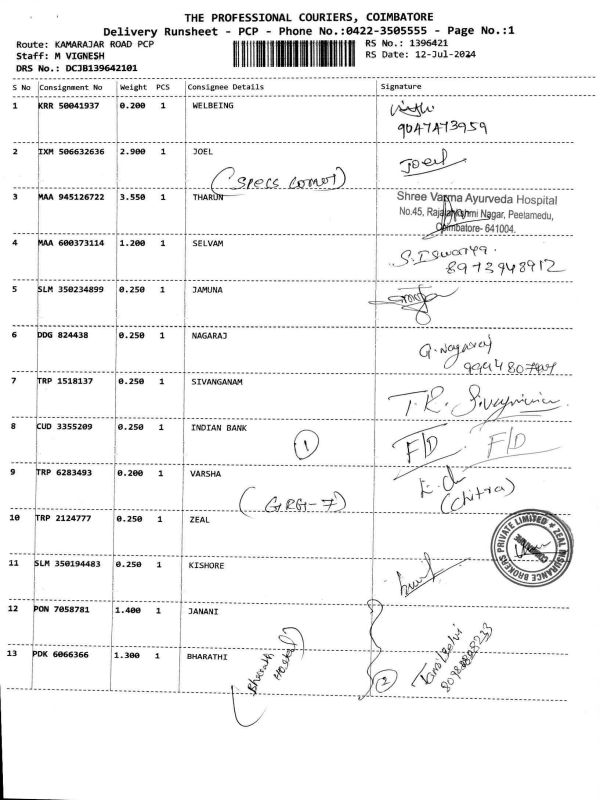 THE PROFESSIONAL COURIERS, COIMBATORE
Delivery Runsheet - PCP - Phone No.:0422-3505555 - Page No.:1
Route: KAMARAJAR ROAD PCP RS No.: 1396421
Staff: M VIGNESH RS Date: 12-Jul-2024
DRS No.: DCJB139642101
S No Consignment No Weight PCS Consignee Details Signature
1 KRR 50041937 0.200 1 WELBEING
9047473959
2 IXM 506632636 2.900 1 JOEL Joel
(Specs corner)
3 MAA 945126722 3.550 1 THARUN Shree Varma Ayurveda Hospital
No.45, Rajalakshmi Nagar, Peelamedu,
Coimbatore- 641004.
4 MAA 600373114 1.200 1 SELVAM S. Iswarya
8973948912
5 SLM 350234899 0.250 1 JAMUNA
6 DDG 824438 0.250 1 NAGARAJ G. Nagaraj
7 TRP 1518137 0.250 1 SIVANGANAM T.R.
8 CUD 3355209 0.250 1 INDIAN BANK 1 F/D F/D
9 TRP 6283493 0.200 1 VARSHA
(GRG-7) (Chitra)
10 TRP 2124777 0.250 1 ZEAL ZEAL INSURANCE BROKERS PRIVATE LIMITED * COIMBATORE
11 SLM 350194483 0.250 1 KISHORE
12 PON 7058781 1.400 1 JANANI
13 PDK 6066366 1.300 1 BHARATHI
(Bharath Hostel) 2 Tamilselvi